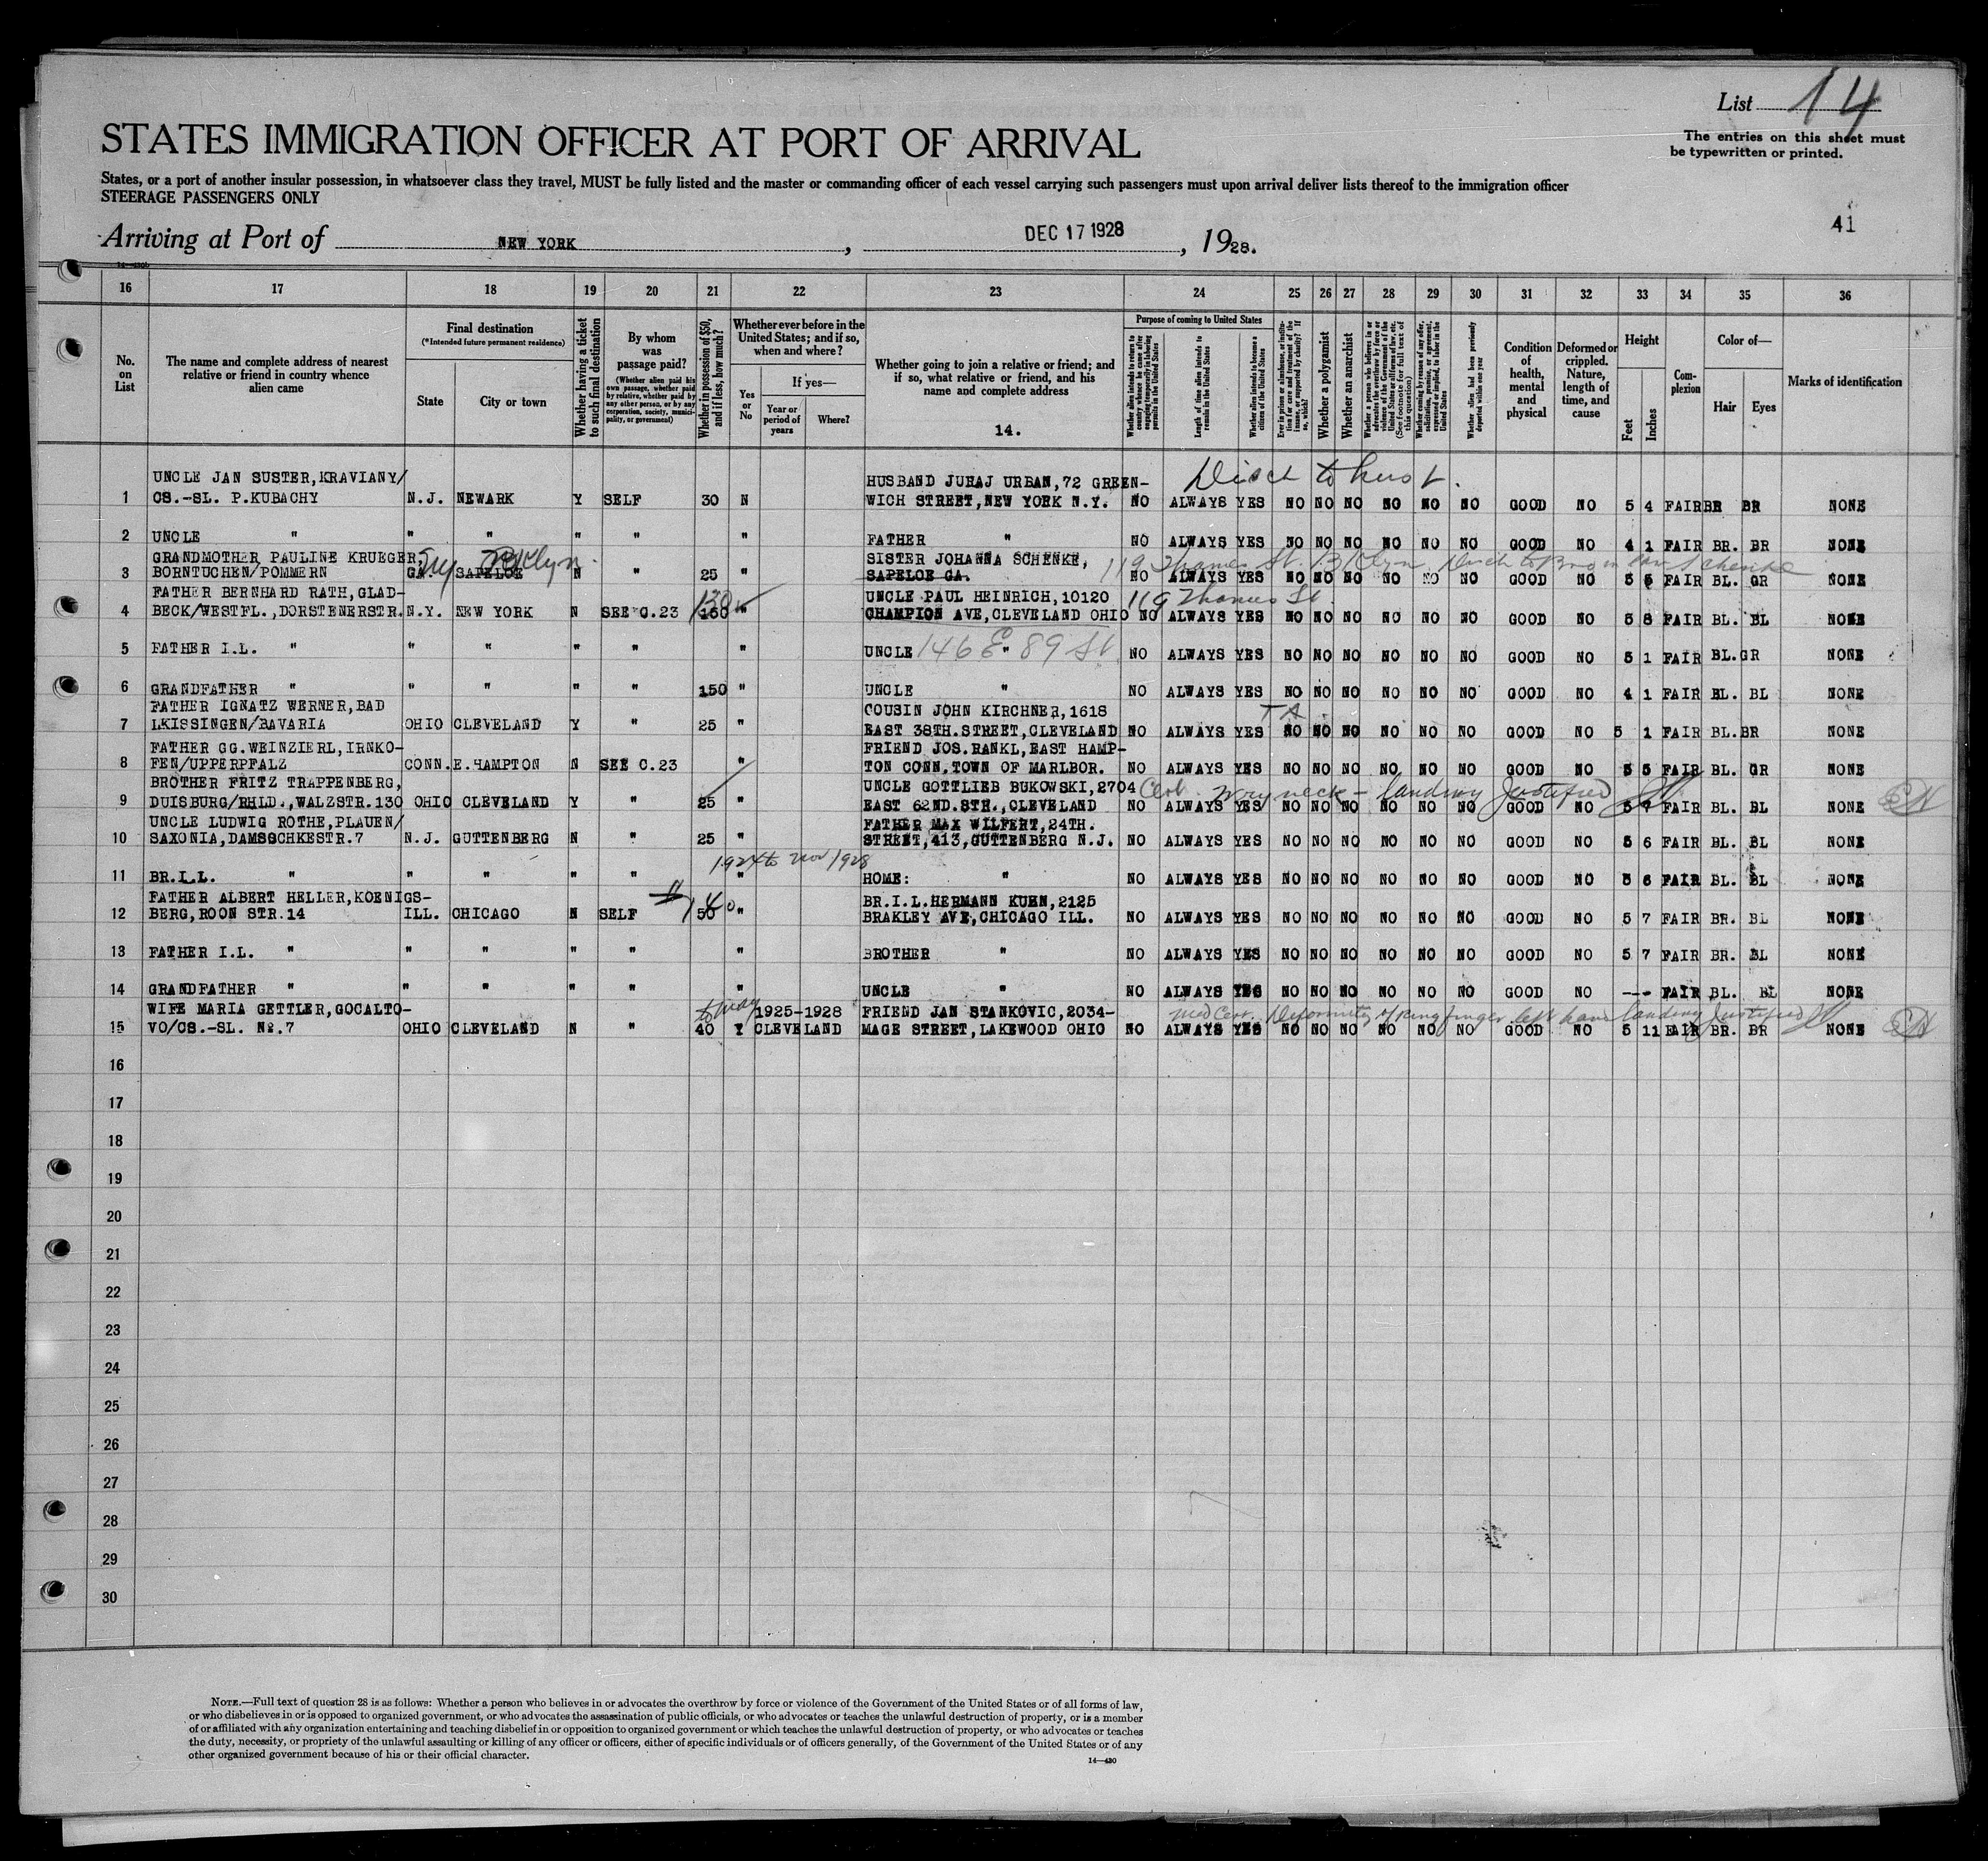 List 14
The entries on this sheet must
be typewritten or printed.
STATES IMMIGRATION OFFICER AT PORT OF ARRIVAL
States, or a port of another insular possession, in whatsoever class they travel, MUST be fully listed and the master or commanding officer of each vessel carrying such passengers must upon arrival deliver lists thereof to the immigration officer
STEERAGE PASSENGERS ONLY
41
Arriving at Port of NEW YORK, DEC 17 1928, 1928.
16 17 18 19 20 21 22 23 24 25 26 27 28 29 30 31 32 33 34 35 36
No. on List
The name and complete address of nearest relative or friend in country whence alien came
Final destination
(*Intended future permanent residence)
State
City or town
Whether having a ticket to such final destination
By whom was passage paid?
(Whether alien paid his own passage, whether paid by relative, whether paid by any other person, or by any corporation, society, municipality, or government)
Whether in possession of $50, and if less, how much?
Whether ever before in the United States; and if so, when and where?
Yes or No
If yes—
Year or period of years
Where?
Whether going to join a relative or friend; and if so, what relative or friend, and his name and complete address
14.
Purpose of coming to United States
Whether alien intends to return to country whence he came after engaging temporarily in laboring pursuits in the United States
Length of time alien intends to remain in the United States
Whether alien intends to become a citizen of the United States
Ever in prison or almshouse, or institution for care and treatment of the insane, or supported by charity? If so, which?
Whether a polygamist
Whether an anarchist
Whether a person who believes in or advocates the overthrow by force or violence of the Government of the United States or all forms of law, etc. (See footnote for full text of this question)
Whether coming by reason of any offer, solicitation, promise, or agreement, expressed or implied, to labor in the United States
Whether alien had been previously deported within one year
Condition of health, mental and physical
Deformed or crippled. Nature, length of time, and cause
Height
Feet
Inches
Complexion
Color of—
Hair
Eyes
Marks of identification
UNCLE JAN SUSTER,KRAVIANY/ HUSBAND JURAJ URBAN,72 GREEN- Disch to husb.
1 CS.-SL. P.KUBACHY N.J. NEWARK Y SELF 30 N WICH STREET,NEW YORK N.Y. NO ALWAYS YES NO NO NO NO NO NO GOOD NO 5 4 FAIR BR BR NONE
2 UNCLE " " " " " " FATHER " NO ALWAYS YES NO NO NO NO NO NO GOOD NO 4 1 FAIR BR. BR NONE
GRANDMOTHER PAULINE KRUEGER, Ny Bklyn SISTER JOHANNA SCHENKE, 119 Thames St. Bklyn
3 BORNTUCHEN/POMMERN GA. SAPELOE N " 25 " SAPELOE GA. NO ALWAYS YES NO NO NO NO NO NO GOOD NO 5 FAIR BL. GR NONE
FATHER BERNHARD RATH,GLAD- 130 UNCLE PAUL HEINRICH,10120 119 Thames St
4 BECK/WESTFL.,DORSTENERSTR. N.Y. NEW YORK N SEE C.23 " CHAMPION AVE,CLEVELAND OHIO NO ALWAYS YES NO NO NO NO NO NO GOOD NO 5 8 FAIR BL. BL NONE
5 FATHER I.L. " " " " " " UNCLE " 146 E 89 St NO ALWAYS YES NO NO NO NO NO NO GOOD NO 5 1 FAIR BL. GR NONE
6 GRANDFATHER " " " " " 150 " UNCLE " NO ALWAYS YES NO NO NO NO NO NO GOOD NO 4 1 FAIR BL. BL NONE
FATHER IGNATZ WERNER,BAD COUSIN JOHN KIRCHNER,1618
7 LKISSINGEN/BAVARIA OHIO CLEVELAND Y " 25 " EAST 38TH.STREET,CLEVELAND NO ALWAYS YES NO NO NO NO NO NO GOOD NO 5 1 FAIR BL. BR NONE
FATHER GG.WEINZIERL,IRNKO- FRIEND JOS.RANKL,EAST HAMP-
8 FEN/UPPERPFALZ CONN. E.HAMPTON N SEE C.23 " TON CONN.TOWN OF MARLBOR. NO ALWAYS YES NO NO NO NO NO NO GOOD NO 5 5 FAIR BL. GR NONE
BROTHER FRITZ TRAPPENBERG, UNCLE GOTTLIEB BUKOWSKI,2704 Cert. wry neck - landing justified
9 DUISBURG/RHLD.,WALZSTR.130 OHIO CLEVELAND Y " 25 " EAST 62ND.STR.,CLEVELAND NO ALWAYS YES NO NO NO NO NO NO GOOD NO 5 7 FAIR BL. BL NONE
UNCLE LUDWIG ROTHE,PLAUEN/ FATHER MAX WILFERT,24TH.
10 SAXONIA,DAMSSCHKESTR.7 N.J. GUTTENBERG N " 25 " STREET,413,GUTTENBERG N.J. NO ALWAYS YES NO NO NO NO NO NO GOOD NO 5 6 FAIR BL. BL NONE
1924 to Nov 1928
11 BR.I.L. " " " " " " HOME: " NO ALWAYS YES NO NO NO NO NO NO GOOD NO 5 6 FAIR BL. BL NONE
FATHER ALBERT HELLER,KOENIGS- 140 BR.I.L.HERMANN KUHN,2125
12 BERG,ROON STR.14 ILL. CHICAGO N SELF 50 " BRAKLEY AVE,CHICAGO ILL. NO ALWAYS YES NO NO NO NO NO NO GOOD NO 5 7 FAIR BR. BL NONE
13 FATHER I.L. " " " " " " BROTHER " NO ALWAYS YES NO NO NO NO NO NO GOOD NO 5 7 FAIR BR. BL NONE
14 GRANDFATHER " " " " " " UNCLE " NO ALWAYS YES NO NO NO NO NO NO GOOD NO --- FAIR BL. BL NONE
WIFE MARIA GETTLER,GOCALTO- to May 1925-1928 FRIEND JAN STANKOVIC,2034- Med Cert. Deformity of ring finger left hand landing justified
15 VO/CS.-SL. No.7 OHIO CLEVELAND N " 40 Y CLEVELAND MAGE STREET,LAKEWOOD OHIO NO ALWAYS YES NO NO NO NO NO NO GOOD NO 5 11 FAIR BR. BR NONE
16
17
18
19
20
21
22
23
24
25
26
27
28
29
30
NOTE.—Full text of question 28 is as follows: Whether a person who believes in or advocates the overthrow by force or violence of the Government of the United States or of all forms of law,
or who disbelieves in or is opposed to organized government, or who advocates the assassination of public officials, or who advocates or teaches the unlawful destruction of property, or is a member
of or affiliated with any organization entertaining and teaching disbelief in or opposition to organized government or which teaches the unlawful destruction of property, or who advocates or teaches
the duty, necessity, or propriety of the unlawful assaulting or killing of any officer or officers, either of specific individuals or of officers generally, of the Government of the United States or of any
other organized government because of his or their official character.
14—430